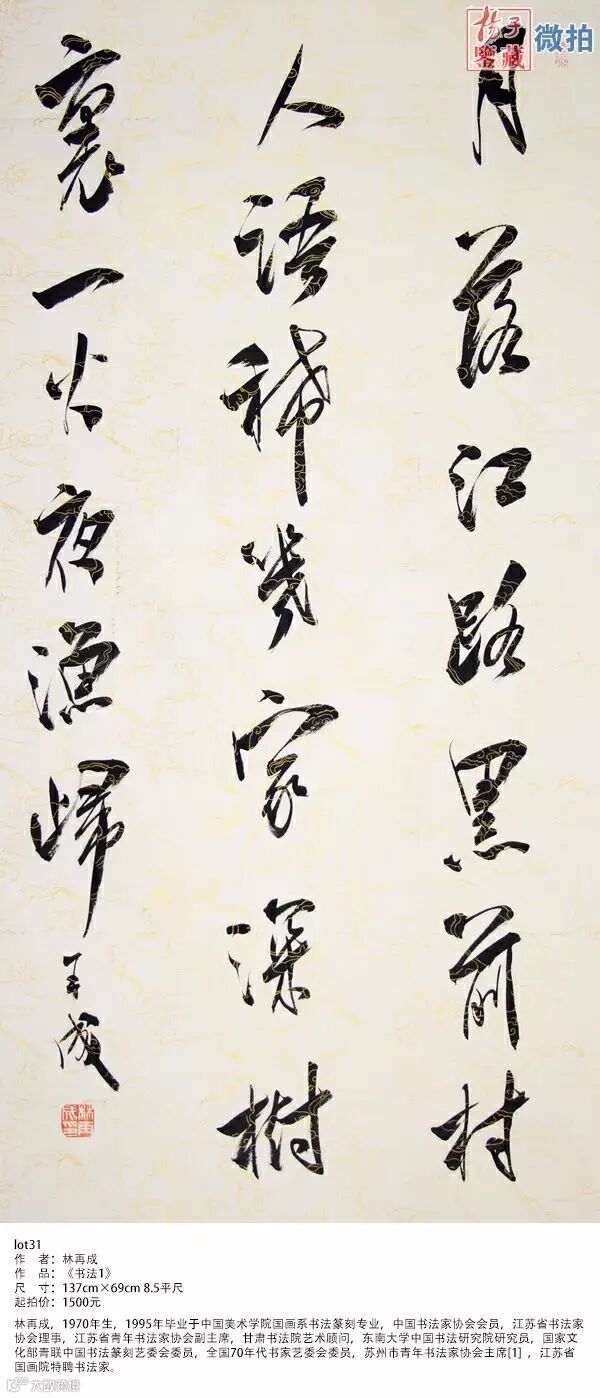 杨子
鉴藏
微拍
月落江路黑前村
人语稀几家深树
里一火夜渔归
再成
lot31
作 者：林再成
作 品：《书法1》
尺 寸：137cm×69cm 8.5平尺
起拍价：1500元
林再成，1970年生，1995年毕业于中国美术学院国画系书法篆刻专业，中国书法家协会会员，江苏省书法家
协会理事，江苏省青年书法家协会副主席，甘肃书法院艺术顾问，东南大学中国书法研究院研究员，国家文
化部青联中国书法篆刻艺委会委员，全国70年代书家艺委会委员，苏州市青年书法家协会主席[1]，江苏省
国画院特聘书法家。
大欧跨境